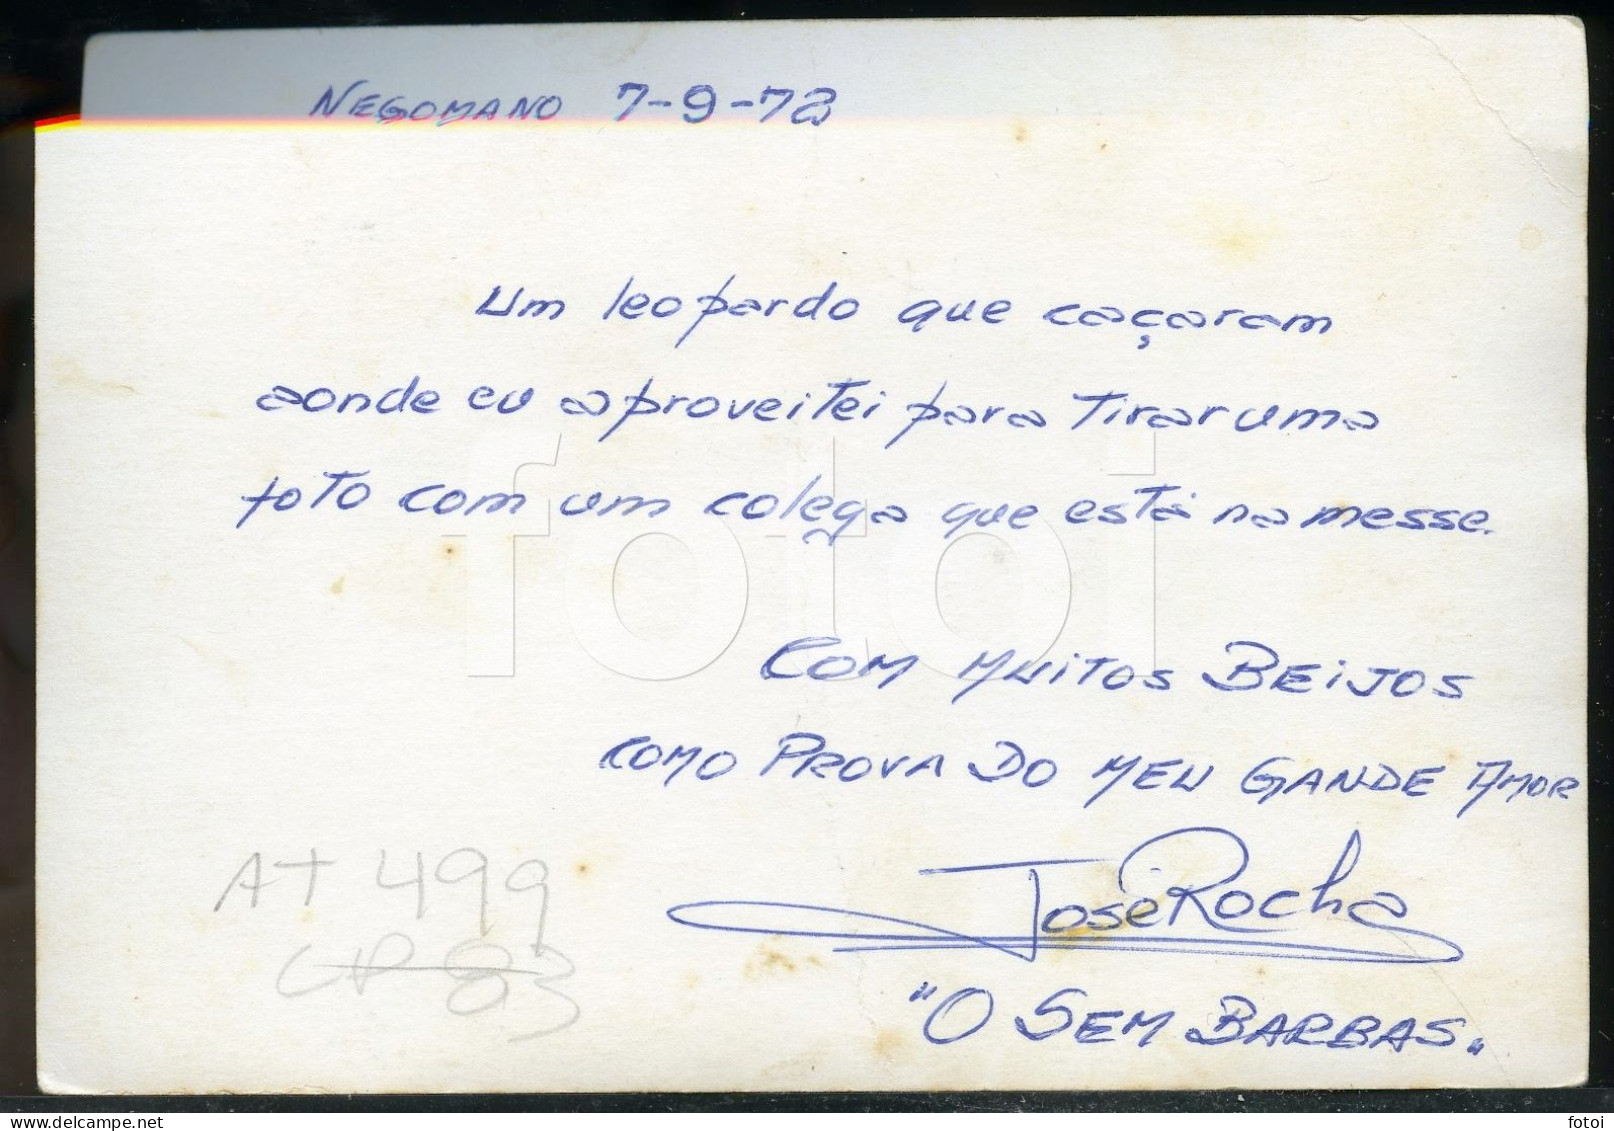 NEGOMANO 7-9-73
Um leopardo que caçaram
aonde eu aproveitei para tirar uma
foto com um colega que está na messe.
COM MUITOS BEIJOS
COMO PROVA DO MEU GANDE AMOR
José Rocha
"O SEM BARBAS"
AT 499
CP 83
fotoi
delcampe.net
fotoi